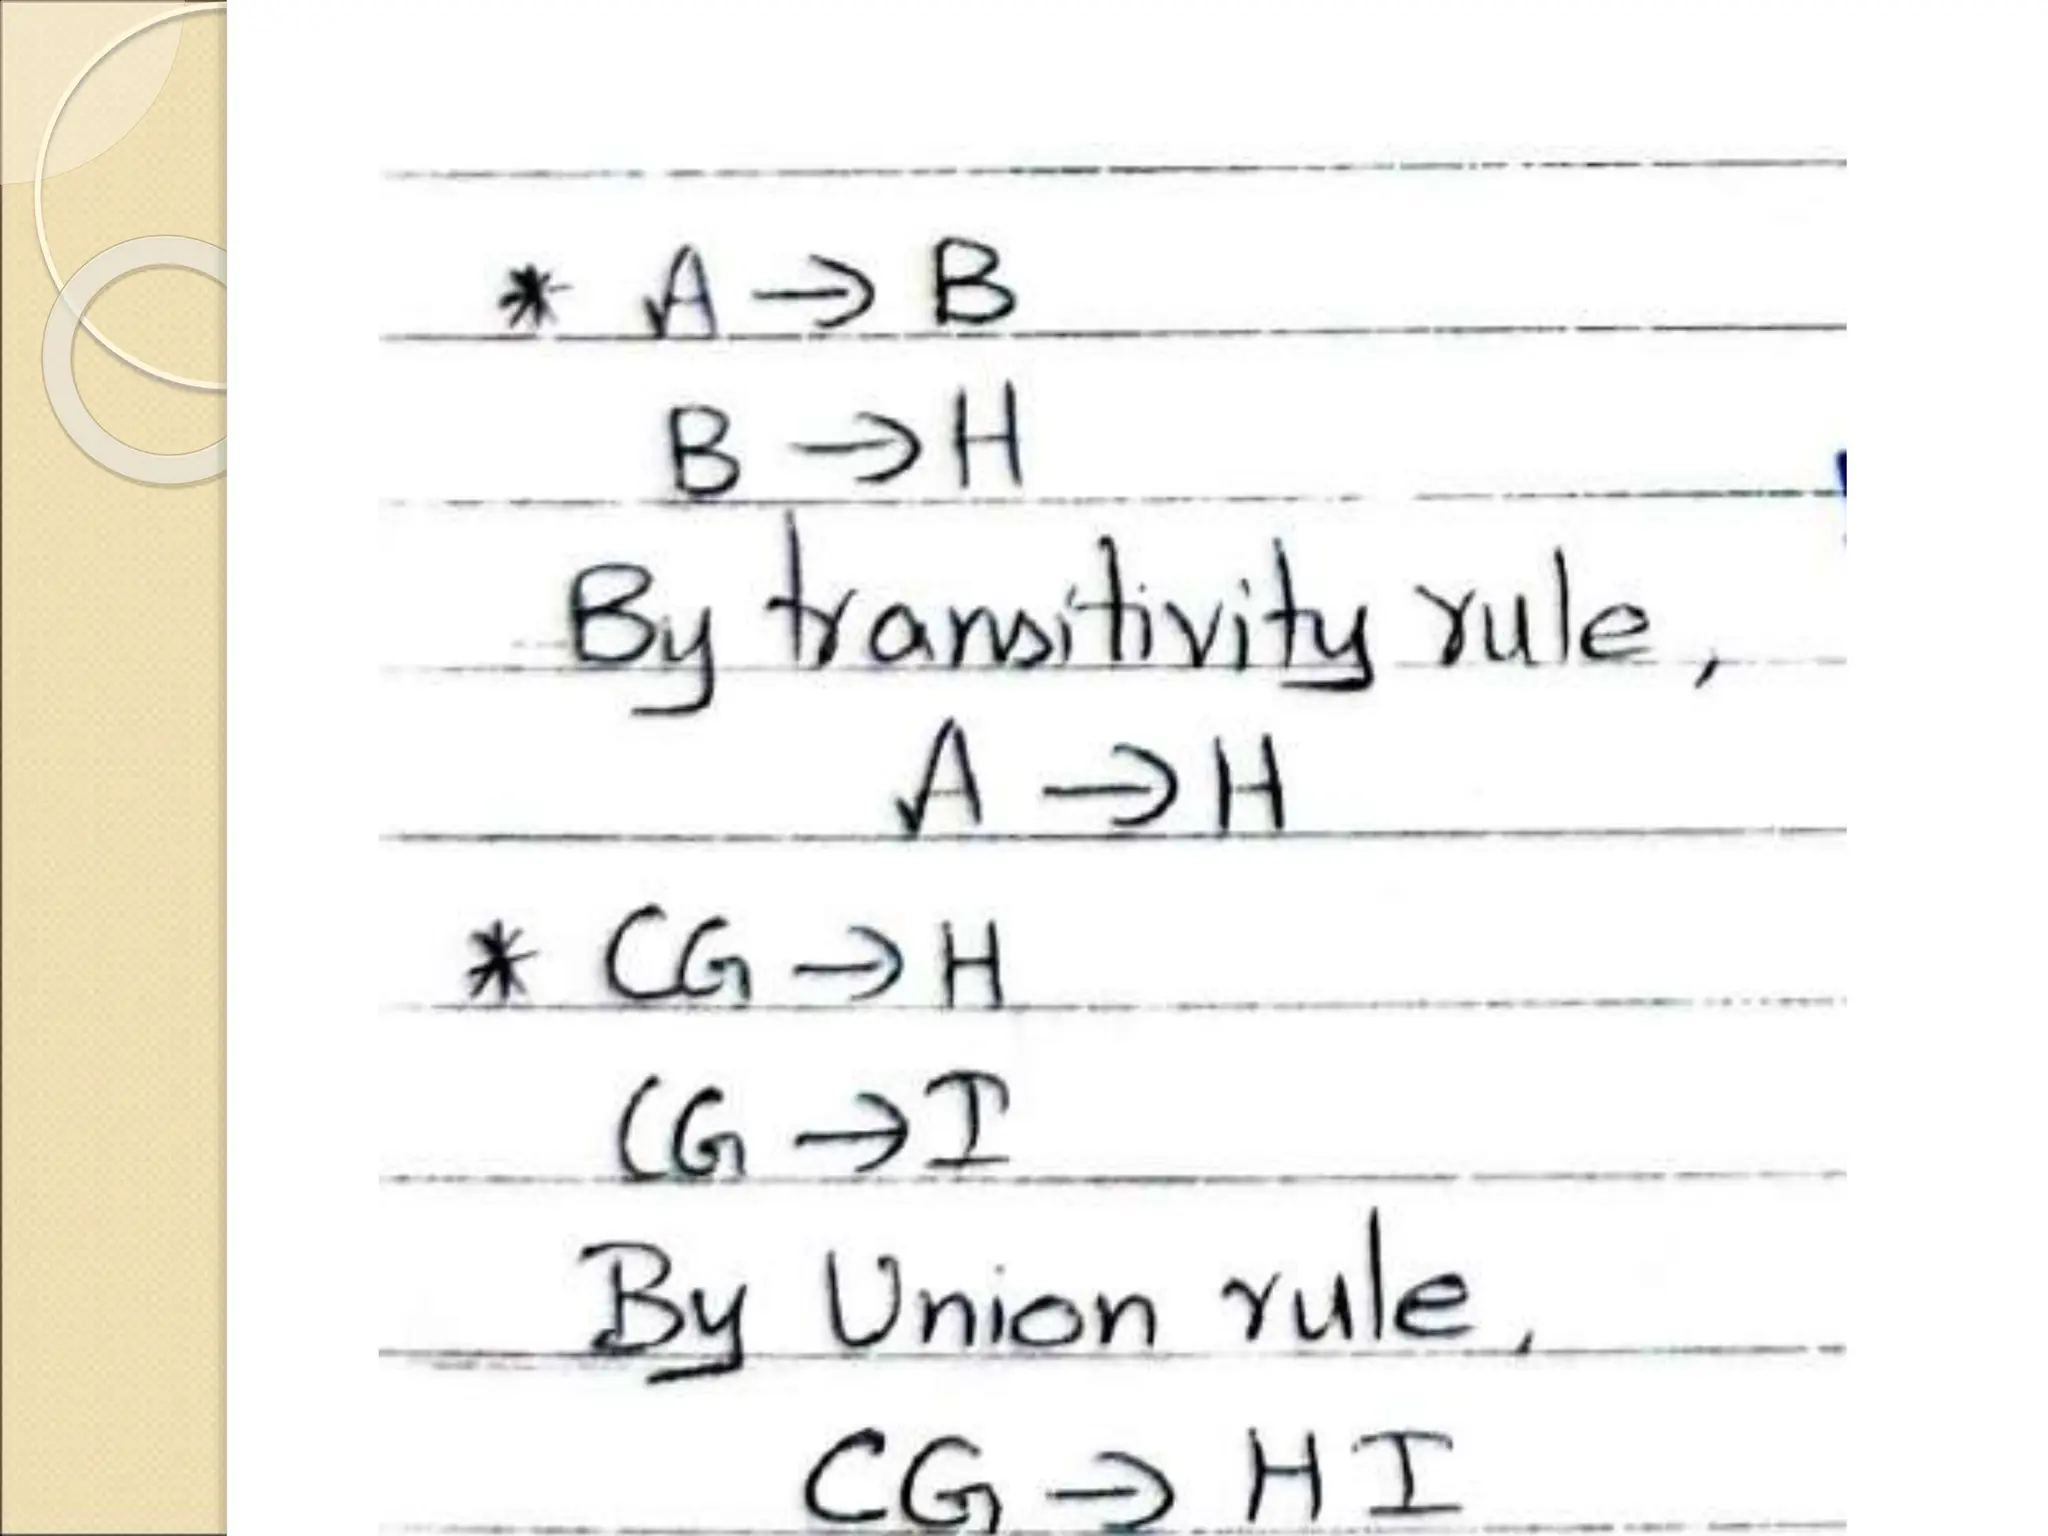 * A → B
B → H
By transitivity rule,
A → H
* CG → H
CG → I
By Union rule,
CG → HI